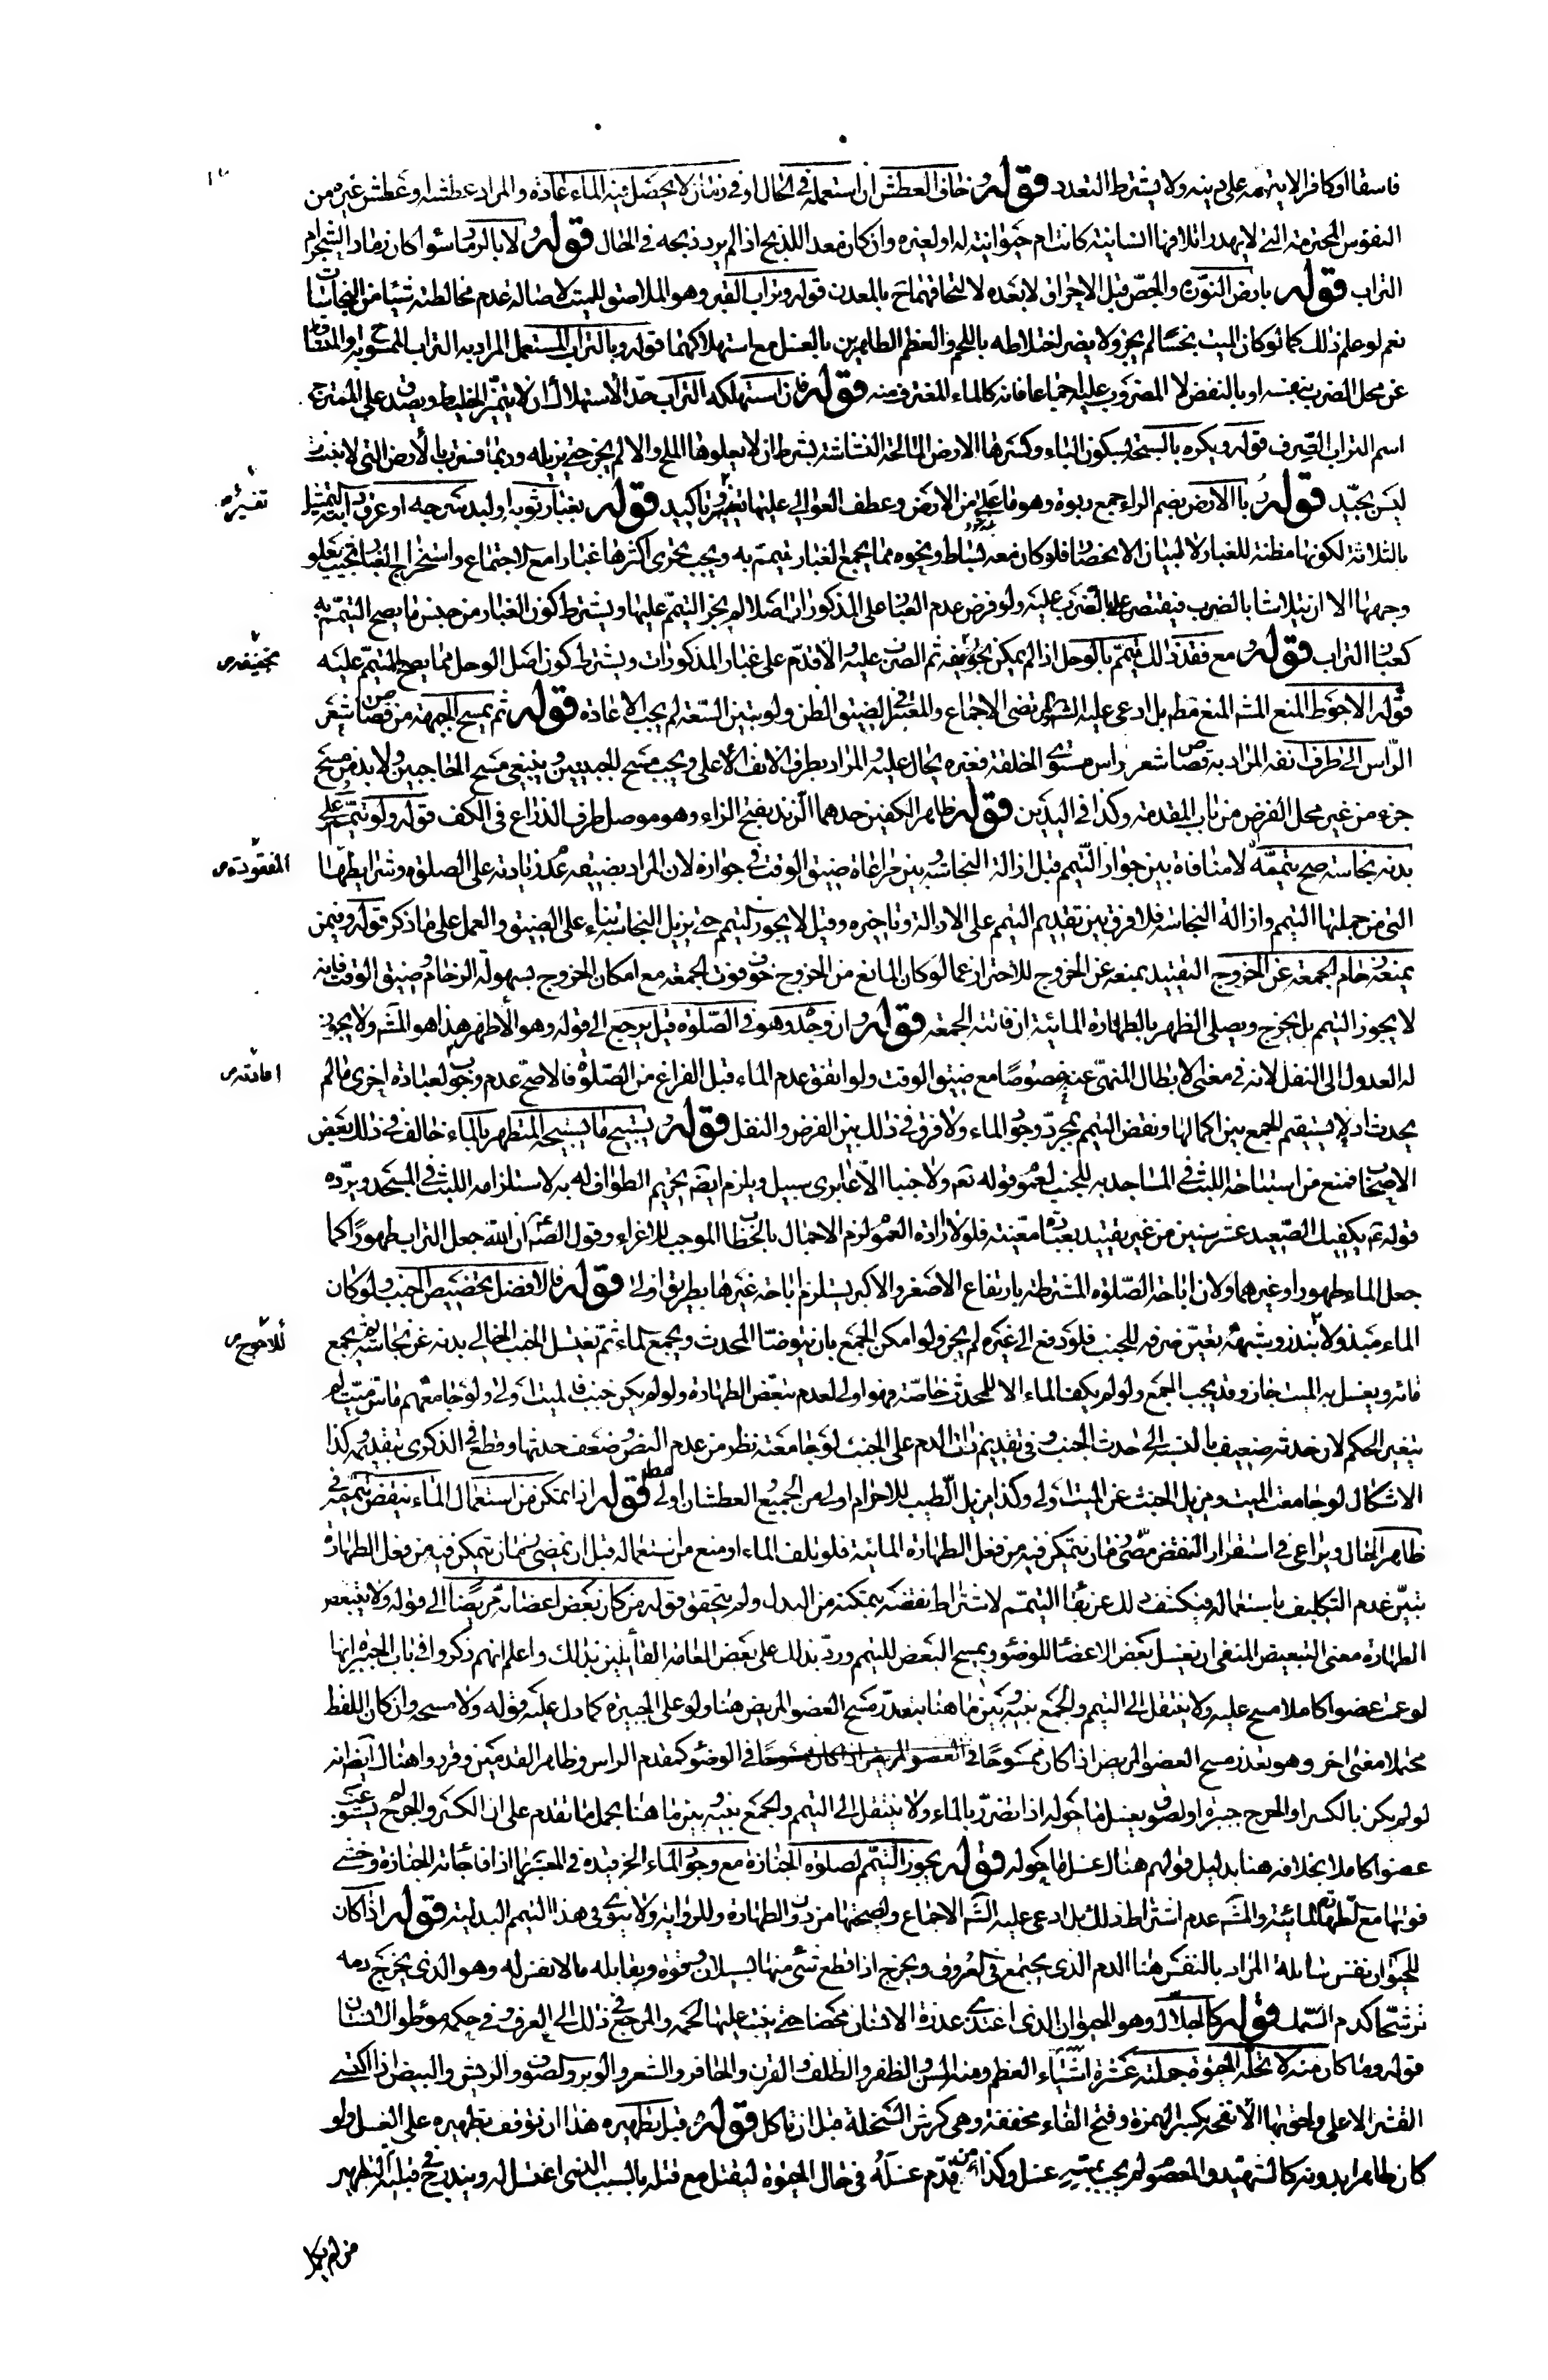 فاسقا او كافرا لا يتهمه على دينه ولا يشترط التعدد قوله خاف العطش ان استعمله في الحال او في زمان لا يحصل فيه الماء عادة والمراد عطشه او عطش غيره من
النفوس المحترمة التي لا يهدر اتلافها انسانية كانت ام حيوانية له او لغيره وان كان معدا للذبح اذا لم يرد ذبحه في الحال قوله لا بالرماد سواء كان رماد الشجر ام
التراب قوله بارض النورة والجص قبل الاحراق لا بعده لالتحاقهما ح بالمعدن قوله وبتراب القبر وهو الملاصق للميت لاصالة عدم مخالطته شيئا من النجاسات
نعم لو علم ذلك كما لو كان الميت نجسا لم يجز ولا يضر اختلاطه باللحم والعظم الطاهرين بالغسل مع استهلاكهما قوله وبالتراب المستعمل المراد به التراب الممسوح به والمتساقط
عن محل الضرب بنفسه او بالنفض لا المضروب عليه اجماعا فانه كالماء المغترف منه قوله فان استهلكه التراب حد الاستهلاك ان لا يتميز الخليط ويصدق على الممتزج
اسم التراب الصرف قوله ويكره بالسبخة بسكون الباء وكسرها الارض المالحة النشاشة بشرط ان لا يعلوها الملح والا لم يجز حتى يزيله وربما فسرت بالارض التي لا تنبت
ليس بجيد قوله بالارض بضم الراء جمع ربوة وهو ما علا من الارض وعطف العوالي عليها تفسير وتاكيد قوله بغبار ثوبه او لبد سرجه او عرف دابته التمثيل تفسيره
بالثلاثة لكونها مظنة للغبار ولا لبيان الانحصار فلو كان معه بساط ونحوه مما يجمع الغبار تيمم به ويجب تحري اكثرها غبارا مع الاجتماع واستخراج الغبار بحيث يعلو
وجهها الا ان يتلاشا بالضرب فيقتصر على الضرب عليه ولو فرض عدم الغبار على المذكورات اصلا لم يجز التيمم عليها ويشترط كون الغبار من جنس ما يصح التيمم به
كغبار التراب قوله مع فقد ذلك تيمم بالوحل اذا لم يمكن تجفيفه ثم الضرب عليه والا قدم على غبار المذكورات ويشترط كون اصل الوحل مما يصح التيمم عليه تجفيفه
قوله الاحوط المنع المشهور المنع مطلقا بل ادعى عليه المرتضى الاجماع والمعتبر في الضيق الظن ولو تبين السعة لم يجب الاعادة قوله ثم يمسح الجبهة من قصاص شعر
الراس الى طرف انفه المراد به قصاص شعر راس مستوى الخلقة فغيره يحال عليه والمراد بطرف الانف الاعلى ويجب مسح الجبينين وينبغي مسح الحاجبين ولا بد من مسح
جزء من غير محل الفرض من باب المقدمة وكذا في اليدين قوله ظاهر الكفين حدهما الزند بفتح الزاء وهو موصل طرف الذراع في الكف قوله ولو تيمم وعلى
بدنه نجاسة صح تيممه لا منافاة بين جواز التيمم قبل ازالة النجاسة وبين مراعاة ضيق الوقت في جوازه لان المراد بضيقه عدم زيادته على الصلوة وشرائطها المفقودة
التي من جملتها التيمم وازالة النجاسة فلا فرق بين تقديم التيمم على الازالة وتاخيره وقيل لا يجوز التيمم حتى يزيل النجاسة بناء على الضيق والعمل على ما ذكر قوله وفيمن
يمنعه زحام الجمعة عن الخروج التقييد بمنعه عن الخروج للاحتراز عما لو كان المانع من الخروج خوف فوت الجمعة مع امكان الخروج بسهولة الزحام وضيق الوقت فانه
لا يجوز التيمم بل يخرج ويصلي الظهر بالطهارة المائية ان فاتته الجمعة قوله ان وجده وهو في الصلوة قيل يرجع الى قوله وهو الاظهر هذا هو المشهور ولا يجوز
له العدول الى النفل لانه في معنى الابطال المنهي عنه خصوصا مع ضيق الوقت ولو اتفق عدم الماء قبل الفراغ من الصلوة فالاصح عدم وجوب اعادته لعبادة اخرى ما لم اعادته
يحدث اذ لا يستقيم الجمع بين اكمالها ونقض التيمم بمجرد وجود الماء ولا فرق في ذلك بين الفرض والنفل قوله يستبيح ما يستبيحه المتطهر بالماء خالف في ذلك بعض
الاصحاب فمنع من استباحة اللبث في المساجد به للجنب لعموم قوله تعالى ولا جنبا الا عابري سبيل ويلزم ايضا تحريم الطواف له به لاستلزامه اللبث في المسجد ويرده
قوله يكفيك الصعيد عشر سنين من غير تقييد بعبادة معينة فلولا ارادة العموم لزم الاجمال بالخطاب الموجب للاغراء وقول الصادق ان الله جعل التراب طهورا كما
جعل الماء طهورا وغيرهما ولان اباحة الصلوة المشترطة بارتفاع الاصغر والاكبر يستلزم اباحة غيرها بطريق اولى قوله فالافضل تخصيص الجنب ولو كان
الماء مبذولا بنذر وشبهه تعين صرفه للجنب فلو دفع الى غيره لم يجز ولو امكن الجمع بان يتوضا المحدث ويجمع الماء ثم يغتسل الجنب الخالي بدنه عن نجاسة ثم يجمع للاحوج
مائه ويغسل به الميت جاز وقد يجب الجمع ولو لم يكف الماء الا للمحدث خاصة فهو اولى لعدم تبعض الطهارة ولو لم يكن جنب فالميت اولى ولو جامعهم ماس ميت لم
يتغير الحكم لان حدثه ضعيف بالنسبة الى حدث الجنب وفي تقديم ذات الدم على الجنب لو جامعته نظر من عدم النص وضعف حدثها وقطع في الذكرى بتقديمه وكذا
الاشكال لو جامعت الميت ومزيل الخبث عن الميت اولى وكذا مزيل الطيب للاحرام اولى من الجميع العطشان اولى مطلقا قوله اذا تمكن من استعمال الماء ينقض تيممه في
ظاهر الحال ويراعى في استقرار النقض مضي زمان يتمكن فيه من فعل الطهارة المائية فلو تلف الماء او منع من استعماله قبل ان يمضي زمان يتمكن فيه من فعل الطهارة
تبين عدم التكليف باستعماله فينكشف ذلك عن بقاء التيمم لاشتراط نقضه بتمكنه من المبدل ولم يتحقق قوله من كان بعض اعضائه مريضا الى قوله ولا يتبعض
الطهارة معنى التبعيض المنفي ان يغسل بعض الاعضاء للوضوء ويمسح البعض للتيمم ورد بذلك على بعض العامة القائلين بذلك واعلم انهم ذكروا في باب الجبيرة انها
لو عمت عضوا كاملا مسح عليه ولا ينتقل الى التيمم والجمع بينه وبين ما هنا بتعذر مسح العضو المريض هنا ولو على الجبيرة كما دل عليه قوله ولا مسحه وان كان اللفظ
محتملا معنى اخر وهو تعذر مسح العضو المريض اذا كان ممسوحا في الوضوء كمقدم الراس وظاهر القدمين وقرروا هناك ايضا انه
لو لم يكن بالكسر او الجرح جبيرة او لصوق يغسل ما حوله اذا تضرر بالماء ولا ينتقل الى التيمم والجمع بينه وبين ما هنا بحمل ما تقدم على ان الكسر والجرح لم يستوعب
عضوا كاملا بخلافه هنا بدليل قولهم هناك غسل ما حوله قوله يجوز التيمم لصلوة الجنازة مع وجود الماء الخ قيده في المعتبر بما اذا فاجاته الجنازة وخشي
فوتها مع الطهارة المائية والمشهور عدم اشتراط ذلك بل ادعى عليه الشيخ الاجماع ولصحتها من دون الطهارة وللرواية ولا ينوي في هذا التيمم البدلية قوله اذا كان
للحيوان نفس سائلة المراد بالنفس هنا الدم الذي يجتمع في العروق ويخرج اذا قطع شيء منها بسيلان وقوة ويقابله ما لا نفس له وهو الذي يخرج دمه
ترشحا كدم السمك قوله كالجلال وهو الحيوان الذي اغتذى عذرة الانسان محضا حتى ينبت عليها لحمه والمرجع في ذلك الى العرف وفي حكمه موطوء الانسان
قوله وما كان منه لا تحله الحيوة جملته عشرة اشياء العظم ومنه السن والظفر والظلف والقرن والحافر والشعر والوبر والصوف والريش والبيض اذا اكتسى
القشر الاعلى والحق بها الانفحة بكسر الهمزة وفتح الفاء مخففة وهي كرش السخلة قبل ان تاكل قوله قبل تطهيره هذا ان توقف تطهيره على الغسل ولو
كان طاهرا بدونه كالشهيد والمعصوم لم يجب بمسه غسل وكذا من قدم غسله في حال الحيوة ليقتل مع قتله بالسبب الذي اغتسل له ويندرج في قبلية التطهير
من لم يكمل